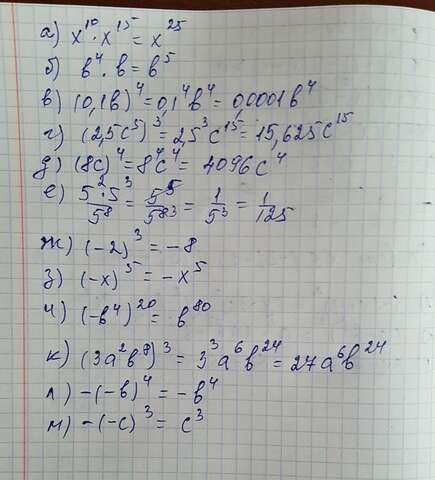 а) x¹⁰ · x¹⁵ = x²⁵
б) в⁴ · в = в⁵
в) (0,1в)⁴ = 0,1⁴в⁴ = 0,0001в⁴
г) (2,5c⁵)³ = 2,5³c¹⁵ = 15,625c¹⁵
д) (8c)⁴ = 8⁴c⁴ = 4096c⁴
е) 5² · 5³ / 5⁸ = 5⁵ / 5⁸ ³ = 1 / 5³ = 1 / 125
ж) (-2)³ = -8
з) (-x)⁵ = -x⁵
и) (-в⁴)²⁰ = в⁸⁰
к) (3a²в⁸)³ = 3³a⁶в²⁴ = 27a⁶в²⁴
л) -(-в)⁴ = -в⁴
м) -(-c)³ = c³